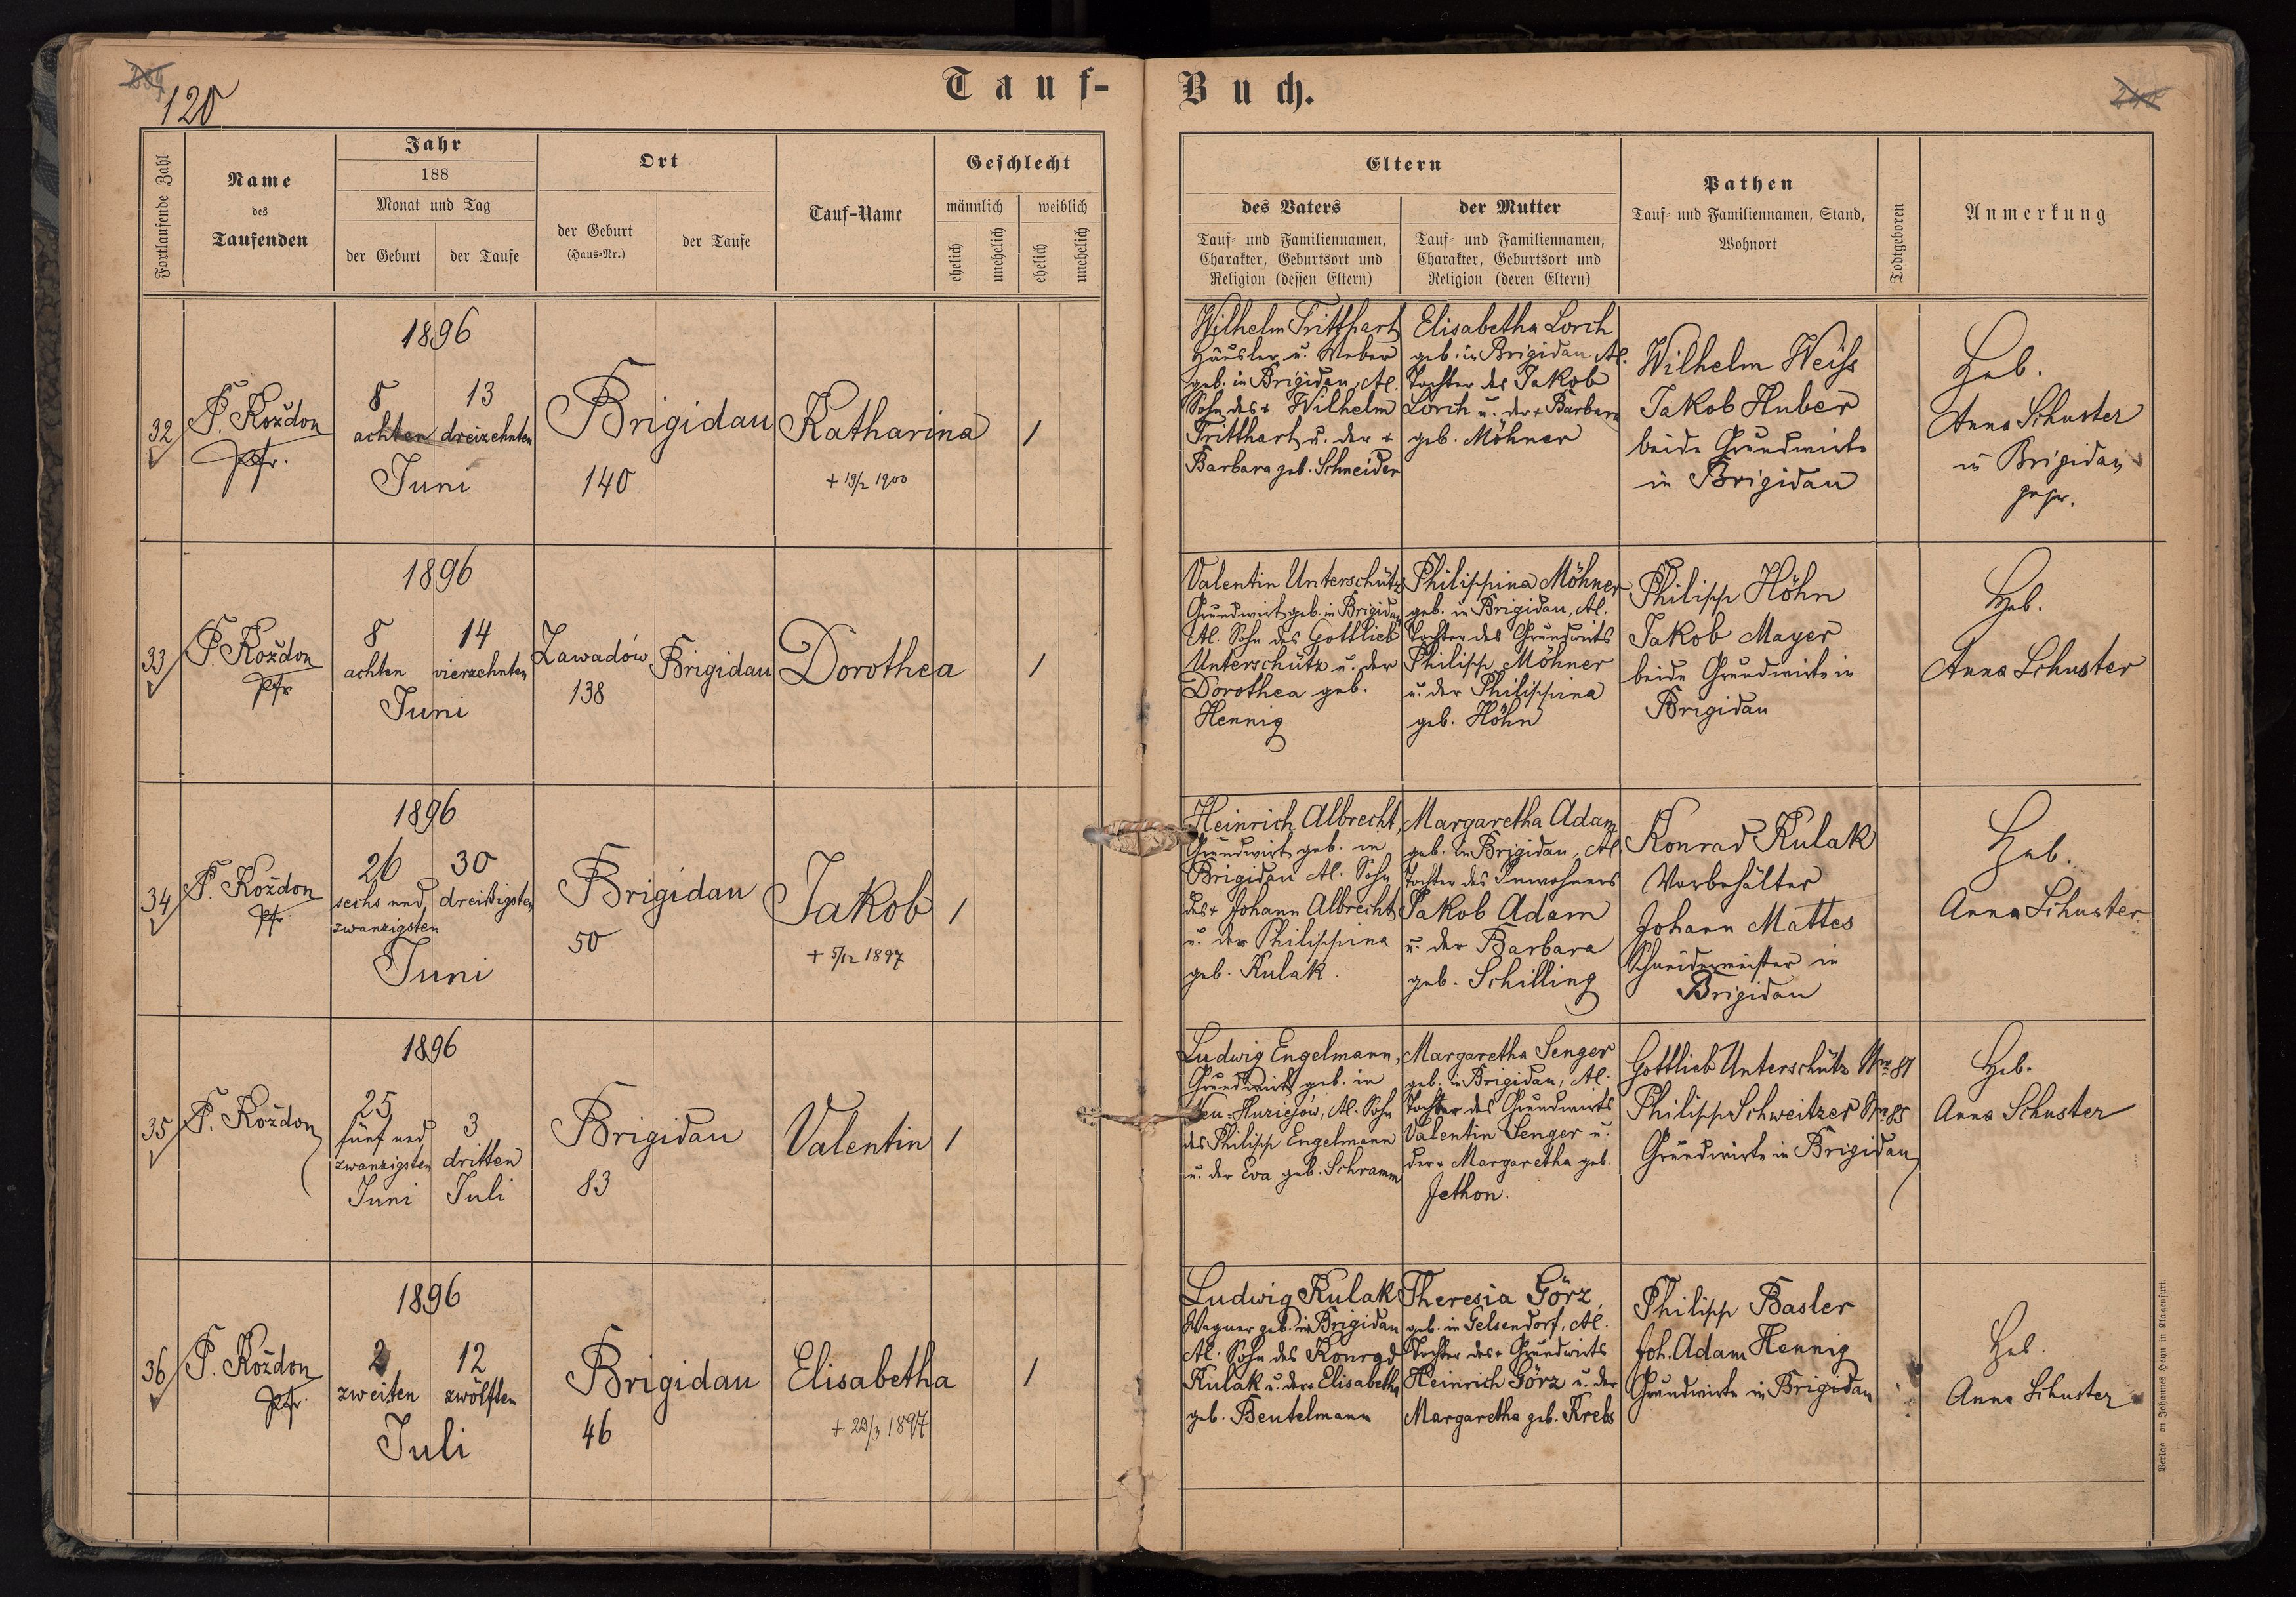 120
Tauf-
Buch.
Fortlaufende Zahl
Name
des
Taufenden
Jahr
188
Monat und Tag
der Geburt
der Taufe
Ort
der Geburt
(Haus-Nr.)
der Taufe
Tauf-Name
Geschlecht
männlich
weiblich
ehelich
unehelich
ehelich
unehelich
Eltern
des Vaters
Tauf- und Familiennamen,
Charakter, Geburtsort und
Religion (dessen Eltern)
der Mutter
Tauf- und Familiennamen,
Charakter, Geburtsort und
Religion (deren Eltern)
Pathen
Tauf- und Familiennamen, Stand,
Wohnort
Todtgeboren
Anmerkung
32
P. Koždon
Pfr.
1896
8 13
achten dreizehnten
Juni
Brigidau
140
Katharina
+ 19/2 1900
1
Wilhelm Tritthart
Häusler u. Weber
geb. in Brigidau, Al.
Sohn des + Wilhelm
Tritthart u. der +
Barbara geb. Schneider
Elisabetha Lorch
geb. in Brigidau Al.
Tochter des Jakob
Lorch u. der + Barbara
geb. Möhner
Wilhelm Weiß
Jakob Huber
beide Grundwirte
in Brigidau
Heb.
Anna Schuster
in Brigidau
gepr.
33
P. Koždon
Pfr
1896
8 14
achten vierzehnten
Juni
Zawadów
138
Brigidau
Dorothea
1
Valentin Unterschütz
Grundwirt geb. in Brigidau
Al. Sohn des Gottlieb
Unterschütz u. der
Dorothea geb.
Hennig
Philippina Möhner
geb. in Brigidau, Al.
Tochter des Grundwirts
Philipp Möhner
u. der Philippina
geb. Höhn
Philipp Höhn
Jakob Mayer
beide Grundwirte in
Brigidau
Heb.
Anna Schuster
34
P. Koždon
Pfr.
1896
26 30
sechs und dreißigsten
zwanzigsten
Juni
Brigidau
50
Jakob
+ 5/12 1897
1
Heinrich Albrecht,
Grundwirt geb. in
Brigidau Al. Sohn
des + Johann Albrecht
u. der Philippina
geb. Kulak.
Margaretha Adam
geb. in Brigidau, Al.
Tochter des Inwohners
Jakob Adam
u. der Barbara
geb. Schilling
Konrad Kulak
Vorbehälter
Johann Mattes
Schneidermeister in
Brigidau
Heb.
Anna Schuster
35
P. Koždon
1896
25 3
fünf und
zwanzigsten dritten
Juni Juli
Brigidau
83
Valentin
1
Ludwig Engelmann,
Grundwirt geb. in
Al. Sohn
des Philipp Engelmann
u. der Eva geb. Schramm
Margaretha Senger
geb. in Brigidau, Al.
Tochter des Grundwirts
Valentin Senger u.
der + Margaretha geb.
Jethon.
Gottlieb Unterschütz Nr. 81
Philipp Schweitzer Nr. 85
Grundwirte in Brigidau
Heb.
Anna Schuster
36
P. Koždon
Pfr.
1896
2 12
zweiten zwölften
Juli
Brigidau
46
Elisabetha
+ 23/3 1897
1
Ludwig Kulak
Wagner geb. in Brigidau
Al. Sohn des Konrad
Kulak u. der + Elisabetha
geb. Beutelmann
Theresia Görz,
geb. in Gelsendorf, Al.
Tochter des + Grundwirts
Heinrich Görz u. der
Margaretha geb. Krebs
Philipp Basler
Joh. Adam Hennig
Grundwirte in Brigidau
Heb.
Anna Schuster
Verlag von Johannes Heyn in Klagenfurt.